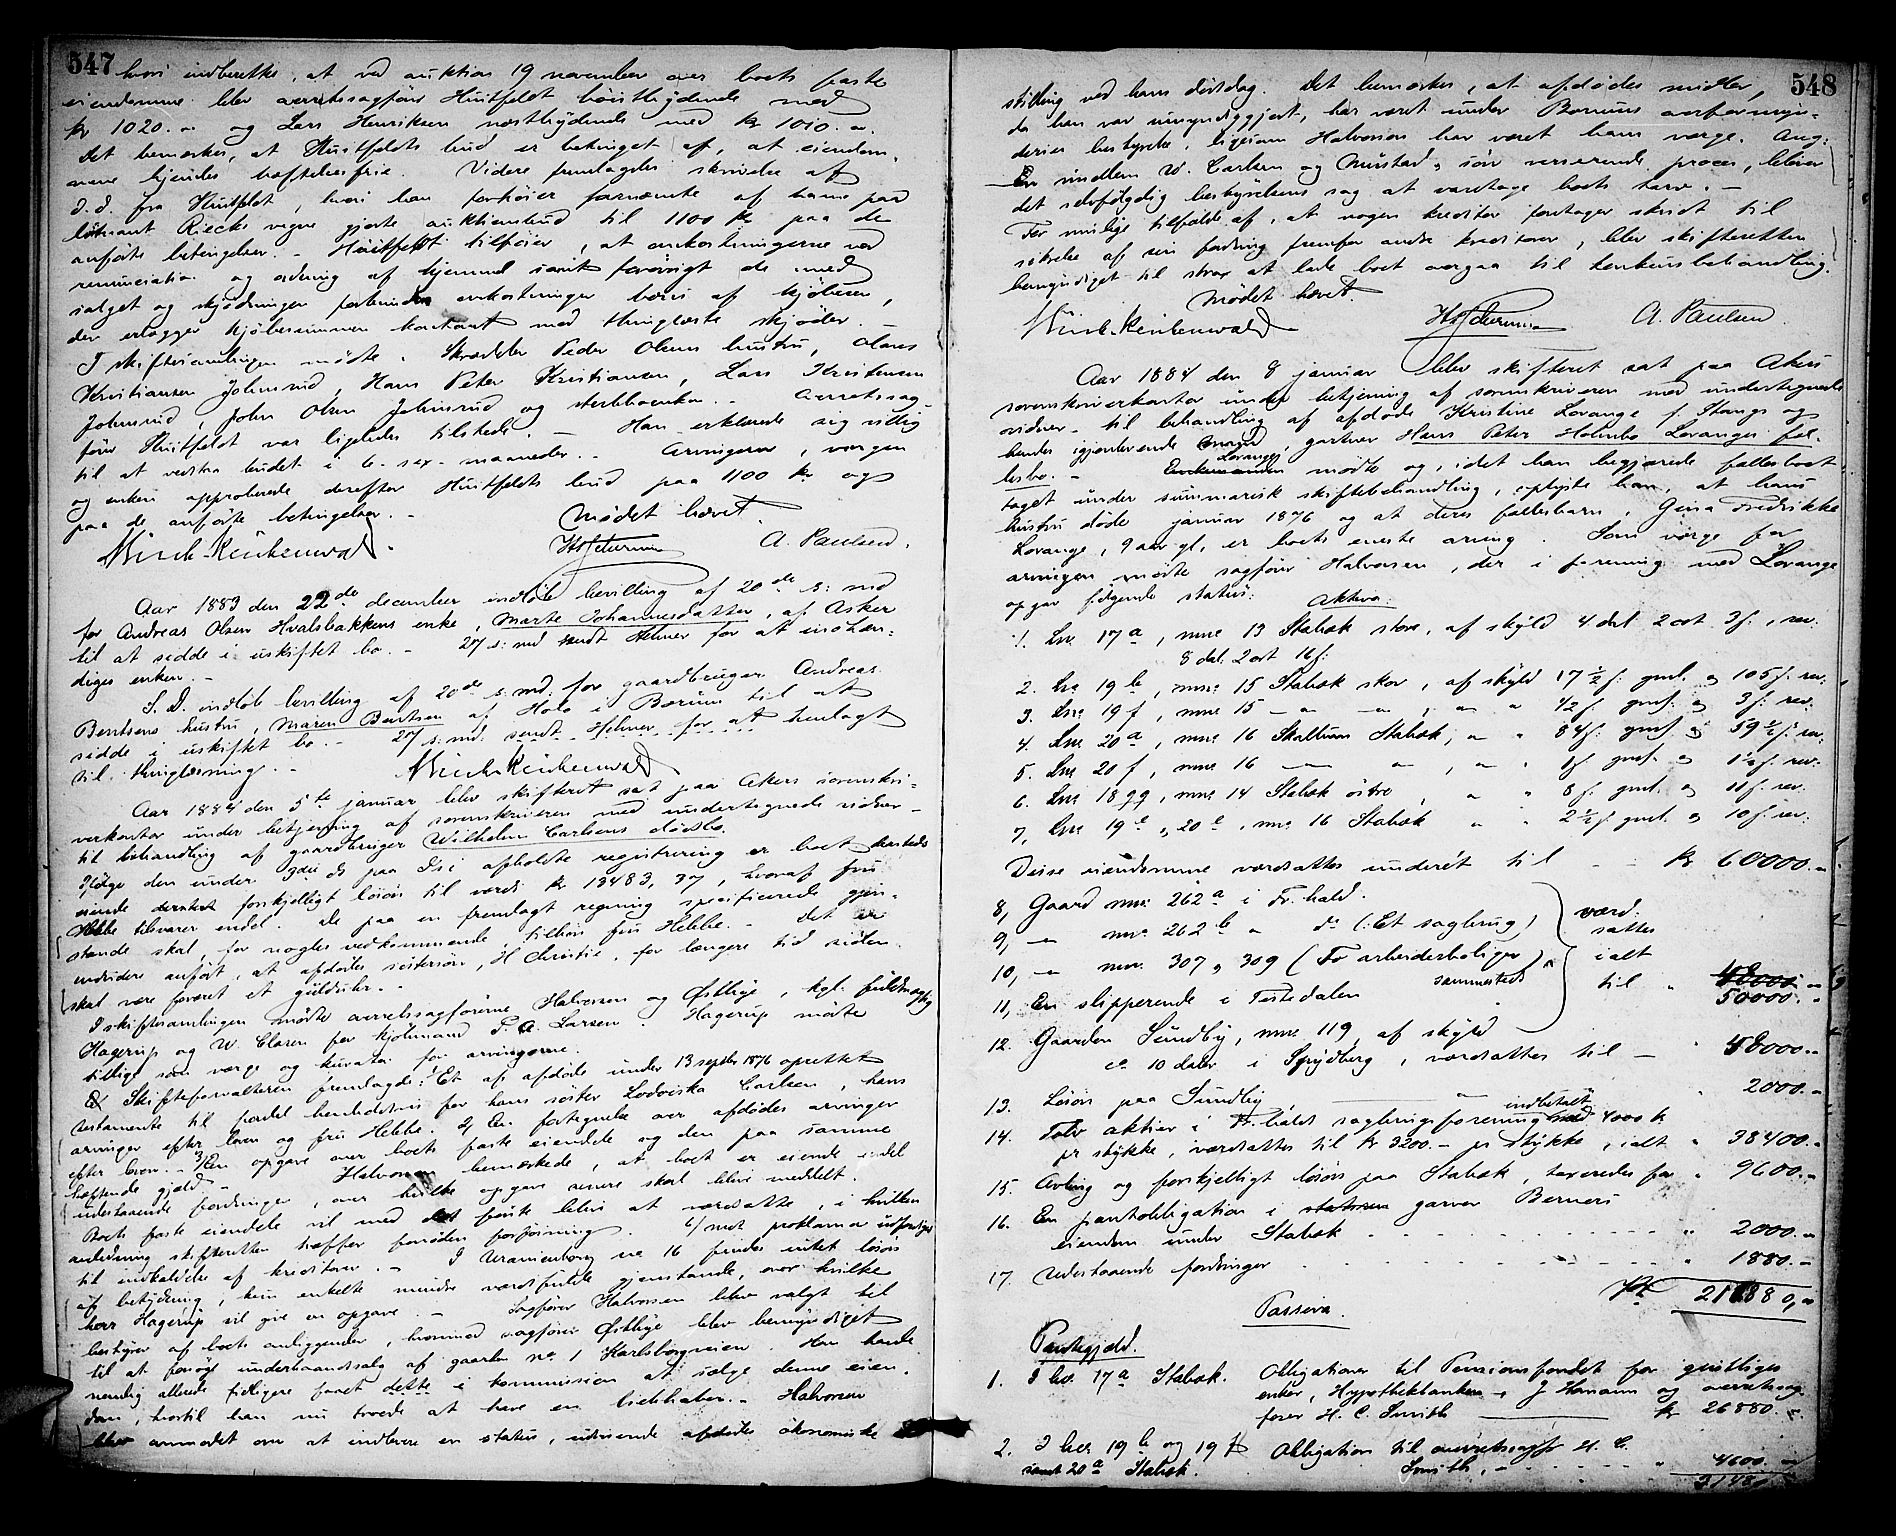 547
hvori indberettes, at ved auktion 19 november over boets faste
eiendomme blev overretssagfører Huitfeldt høistbydende med
kr 1020.- og Lars Henriksen næstbydende med kr 1010.-
Det bemærkes, at Huitfeldts bud er betinget af, at eiendom-
mene kjendes hæftelsesfrie. Videre fremlagdes skrivelse af
d.d. fra Huitfeldt, hvori han forhøier førnævnte af ham paa
løitnant Riecks vegne gjorte auktionsbud til 1100 kr paa de
anførte betingelser. - Huitfeldt tilføier, at omkostningerne ved
renunciation og ordning af hjemmel samt forøvrigt de med
salget og skjødningen forbundne omkostninger bæres af kjøberen,
der erlægger kjøbesummen kontant mod thinglæste skjøder. -
I skiftesamlingen mødte. Skrædder Peder Olsens hustru, Olaves
Kristiansen Johnsrud, Hans Peter Kristiansen, Lars Kristensen
Johnsrud, John Olsen Johnsrud og sterkboenken. - Overretssag-
fører Huitfeldt var ligeledes tilstede. - Han erklærede sig villig
til at vedstaa budet i 6 - sex - maaneder. - Arvingerne, værgen
og enken approberede derefter Huitfeldts bud paa 1100 kr og
paa de anførte betingelser. -
Mødet hævet.
A. Paulsen.
Aar 1883 den 22de december indløb bevilling af 20de s: md
for Andreas Olsen Hvalsbakkens enke, Marte Johannesdatter, af Asker
til at sidde i uskiftet bo. - 27 s: md sendt Helmer for at indhæn-
diges enken. -
S. D. indløb bevilling af 20de s: md. for gaardbruger Andreas
Bentsens hustru, Maren Bentsen af Holo i Bærum til at
sidde i uskiftet bo. - 27 s: md: sendt Helmer for at henlagt
til thinglæsning. -
Aar 1884 den 5te januar blev skifteret sat paa Akers sorenskri-
verkontor under betjening af sorenskriveren med undertegnede vidner -
til behandling af gaardbruger Wilhelm Carlsens dødsbo.
Ifølge den under 3die ds paa Isi afholdte registrering er boet
eiende forskjelligt løsøre til værdi kr 13483,37, hvoraf fru
Hebbe tilvarer endel. De paa en fremlagt regning specificerede gjen-
stande skal, for nogles vedkommende, tilhøre fru Hebbe. - Det er
endvidere anført, at afdødes søstersøn, H Christie, for længere tid siden
skal være foræret et gulduhr. -
I skiftesamlingen mødte overretssagførerne Halvorsen og Østlye, kgl. fuldmægtig
Hagerup og W. Clasen for kjøbmand P. A. Larsen. Hagerup mødte
tillige som værge og kurator for arvingerne.
Skifteforvalteren fremlagde: 1 Et af afdøde under 13 septbr 1876 oprettet
testamente til fordel henholdsvis for hans søster Lodviska Carlsen, hans
arvinger efter loven og fru Hebbe. 2/ En fortegnelse over afdødes arvinger
efter loven. - 3/ En opgave over boets faste eiendele og den paa samme
hæftende gjæld. - Halvorsen bemærkede, at boet er eiende endel
udestaaende fordringer, over hvilke opgave senere skal blive meddelt.
Boets faste eiendele vil med det første blive at værdsætte, i hvilken
anledning skifteretten træffer fornøden forføining. 4/ mit proklama udfærdiget
til indkaldelse af kreditorer. - I Uranienborg no 16 findes intet løsøre
af betydning, kun enkelte mindre værdifulde gjenstande, over hvilke
herr Hagerup vil give en opgave. - Sagfører Halvorsen blev valgt til
bestyrer af boets anliggender, hvorved sagfører Østlye blev bemyndiget
til at forsøge underhaandssalg af gaarden no 1 Karlsborgveien. Han havde
nemlig allerede tidligere faaet dette i kommission at sælge denne eien-
dom, hvortil han nu troede at have en liebhaber. - Halvorsen
blev anmodet om at indlevere en status, udvisende afdødes økonomiske
548
stilling ved hans dødsdag. Det bemærkes, at afdødes midler,
da han var umyndiggjort, har været under Bærums overformyn-
deries bestyrelse, ligesom Halvorsen har været hans værge. Ang:
en imellem W. Carlsen og Mustad & søn verserende proces, bliver
det selvfølgelig bestyrelsens sag at varetage boets tarv. -
For mulige tilfælde af, at nogen kreditor foretager skridt til
sikrelse af sin fordring fremfor andre kreditorer, blev skifteretten
bemyndiget til strax at lade boet overgaa til konkursbehandling.
Mødet hævet.
A. Paulsen
Aar 1884 den 8 januar blev skifteret sat paa Akers
sorenskriverkontor under betjening af sorenskriveren med undertegnede
vidner - til behandling af afdøde Kristine Lorange f. Stangs og
hendes igjenlevende mand, gartner Hans Peter Holmbo Loranges fæl-
lesbo. - Enkemanden Lorange mødte og, idet han begjærede fællesboet
taget under summarisk skiftebehandling, oplyste han, at hans
hustru døde januar 1876 og at deres fællesbarn, Gina Fredrikke
Lorange, 9 aar gl, er boets eneste arving. Som værge for
arvingen mødte sagfører Halvorsen, der i forening med Lorange
opgav følgende status:
Aktiva:
1. Lnr 17a, mnr 13 Stabæk store, af skyld 4 dal 2 ort 3 f., rev.
8 dal. 2 ort 16 f.
2. Lnr 19b, mnr. 15 Stabæk skov, af skyld 17 1/2 f: gml. og 105 f. rev:
3. Lnr. 19f, mnr. 15 - " - " , " " 1/2 f. gml. og 3 f: rev.
4. Lnr. 20a, mnr. 16 Skallum Stabæk, " " 84 f: gml. og 59 1/2 f: rev:
5. Lnr 20f, mnr 16 - " " , " " 1 f gml. og 1 1/2 f. rev.
6. Lnr 18gg, mnr. 14 Stabæk østre, " " 8 f. gml. og 11 f. rev.
7, Lnr 19e, 20e, mnr. 16 Stabæk " " 2 1/2 f. gml. og 10 f. rev:
Disse eiendomme værdsættes underét til - - kr 60000.-
8, Gaard mnr: 262a i Fr.hald.
9, - " mnr 262b " do (: Et sagbrug)
10, - " mnr. 307 og 309 (To arbeiderboliger)
sammesteds
11, En slipperende i Tistedalen
værd:
sættes
ialt
til " 48000 "
50000. "
12. Gaarden Sundby, mnr. 119, af skyld
ca 10 daler i Spydberg, værdsættes til - " 48000.-
13. Løsøre paa Sundby " 2000.-
14. Tolv aktier i Fr.halds sagbrugsforening indbetalt med 4000 k.
pr stykke, værdsættes til kr 3200.- pr stykke, ialt " 38400.-
15. Avling og forskjelligt løsøre paa Stabæk, taxeredes for " 9600.-
16. En pantobligation i garver Berners
eiendom under Stabæk - - - - " 2000.-
17. Udestaaende fordringer - - - - " 1880.-
Kr 211880,-
Passiva.
Pantegjæld.
1. I lnr. 17a Stabæk. Obligationer til Pensionsfondet for geistliges
enker, Hypothekbanken, J Homann og overretssag-
fører H. C. Smith kr 26880.-
2. I lnr. 19b og 19f Obligation til overretssagfr H. C.
samt 20a Stabæk. Smith, - - - " 4600.-
31480